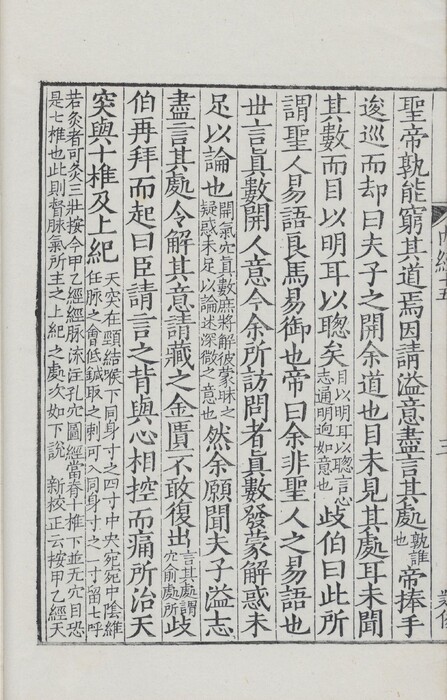 聖帝孰能窮其道焉因請溢意盡言其處孰誰也帝捧手
逡巡而却曰夫子之開余道也目未見其處耳未聞
其數而目以明耳以聰矣目以明耳以聰言心志通明迥如意也歧伯曰此所
謂聖人易語良馬易御也帝曰余非聖人之易語也
世言眞數開人意今余所訪問者眞數發蒙解惑未
足以論也開氣穴眞數庶將解彼蒙昧之疑惑未足以論述深微之意也然余願聞夫子溢志
盡言其處令解其意請藏之金匱不敢復出言其處謂穴俞處所歧
伯再拜而起曰臣請言之背與心相控而痛所治天
突與十椎及上紀天突在頸結喉下同身寸之四寸中央宛宛中陰維任脈之會低鍼取之刺可入同身寸之一寸留七呼
若灸者可灸三壯按今甲乙經經脈流注孔穴圖經當脊十椎下並无穴目恐
是七椎也此則督脈氣所主之上紀之處次如下說 新校正云按甲乙經天
内經十五